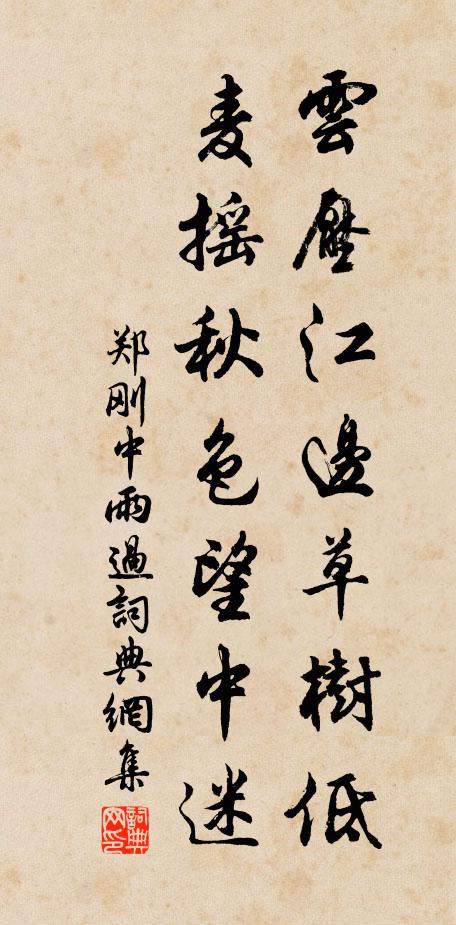 雲壓江邊草樹低
麦摇秋色望中迷
郑刚中雨過詞典網集
詞典网印